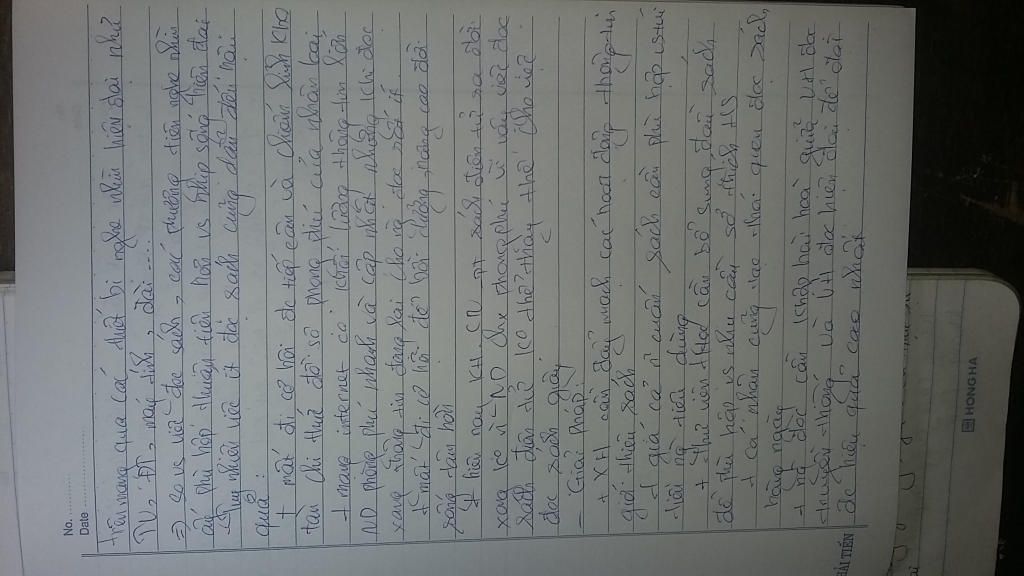 No. ..................
Date ..................
trên mạng qua các thiết bị nghe nhìn hiện đại như
TV, ĐT, máy tính, đài ....
=> so vs việc đọc sách, các phương tiện nghe nhìn
ấy phù hợp thuận tiện hơn vs nhịp sống hiện đại
- Tuy nhiên vc ít đọc sách cũng dẫn đến hậu
quả:
+ mất đi cơ hội đc tiếp cận và chiếm lĩnh kho
tàn chi thức đồ sộ phong phú của nhân loại
+ mạng internet có khối lượng thông tin lớn
ND phong phú nhanh và cập nhật nhưng khi đọc
xong thông tin đọng lại cho ng đọc rất ít
+ mất đi cơ hội để bồi dưỡng, nâng cao đời
sống tâm hồn
# hiện nay KH CN PT sách điện tử ra đời
xong ko vì ND phong phú vì vậy việc đọc
sách điện tử ko thể thay thế cho việc
đọc sách giấy.
- Giải Pháp:
+ XH cần đẩy mạnh các hoạt động thông tin
giới thiệu sách
+ giá cả ở cuốn sách cần phù hợp với
túi ng tiêu dùng
+ thư viện trg cần bổ sung đầu sách
để phù hợp vs nhu cầu sở thích HS
+ Cá nhân cũng tạo thói quen đọc sách
hằng ngày
+ ng đọc cần kết hợp hài hoà giữa VH đọc
truyền thống và VH đọc hiện đại để đạt
đc hiệu quả cao nhất
HẢI TIẾN
HONG HA